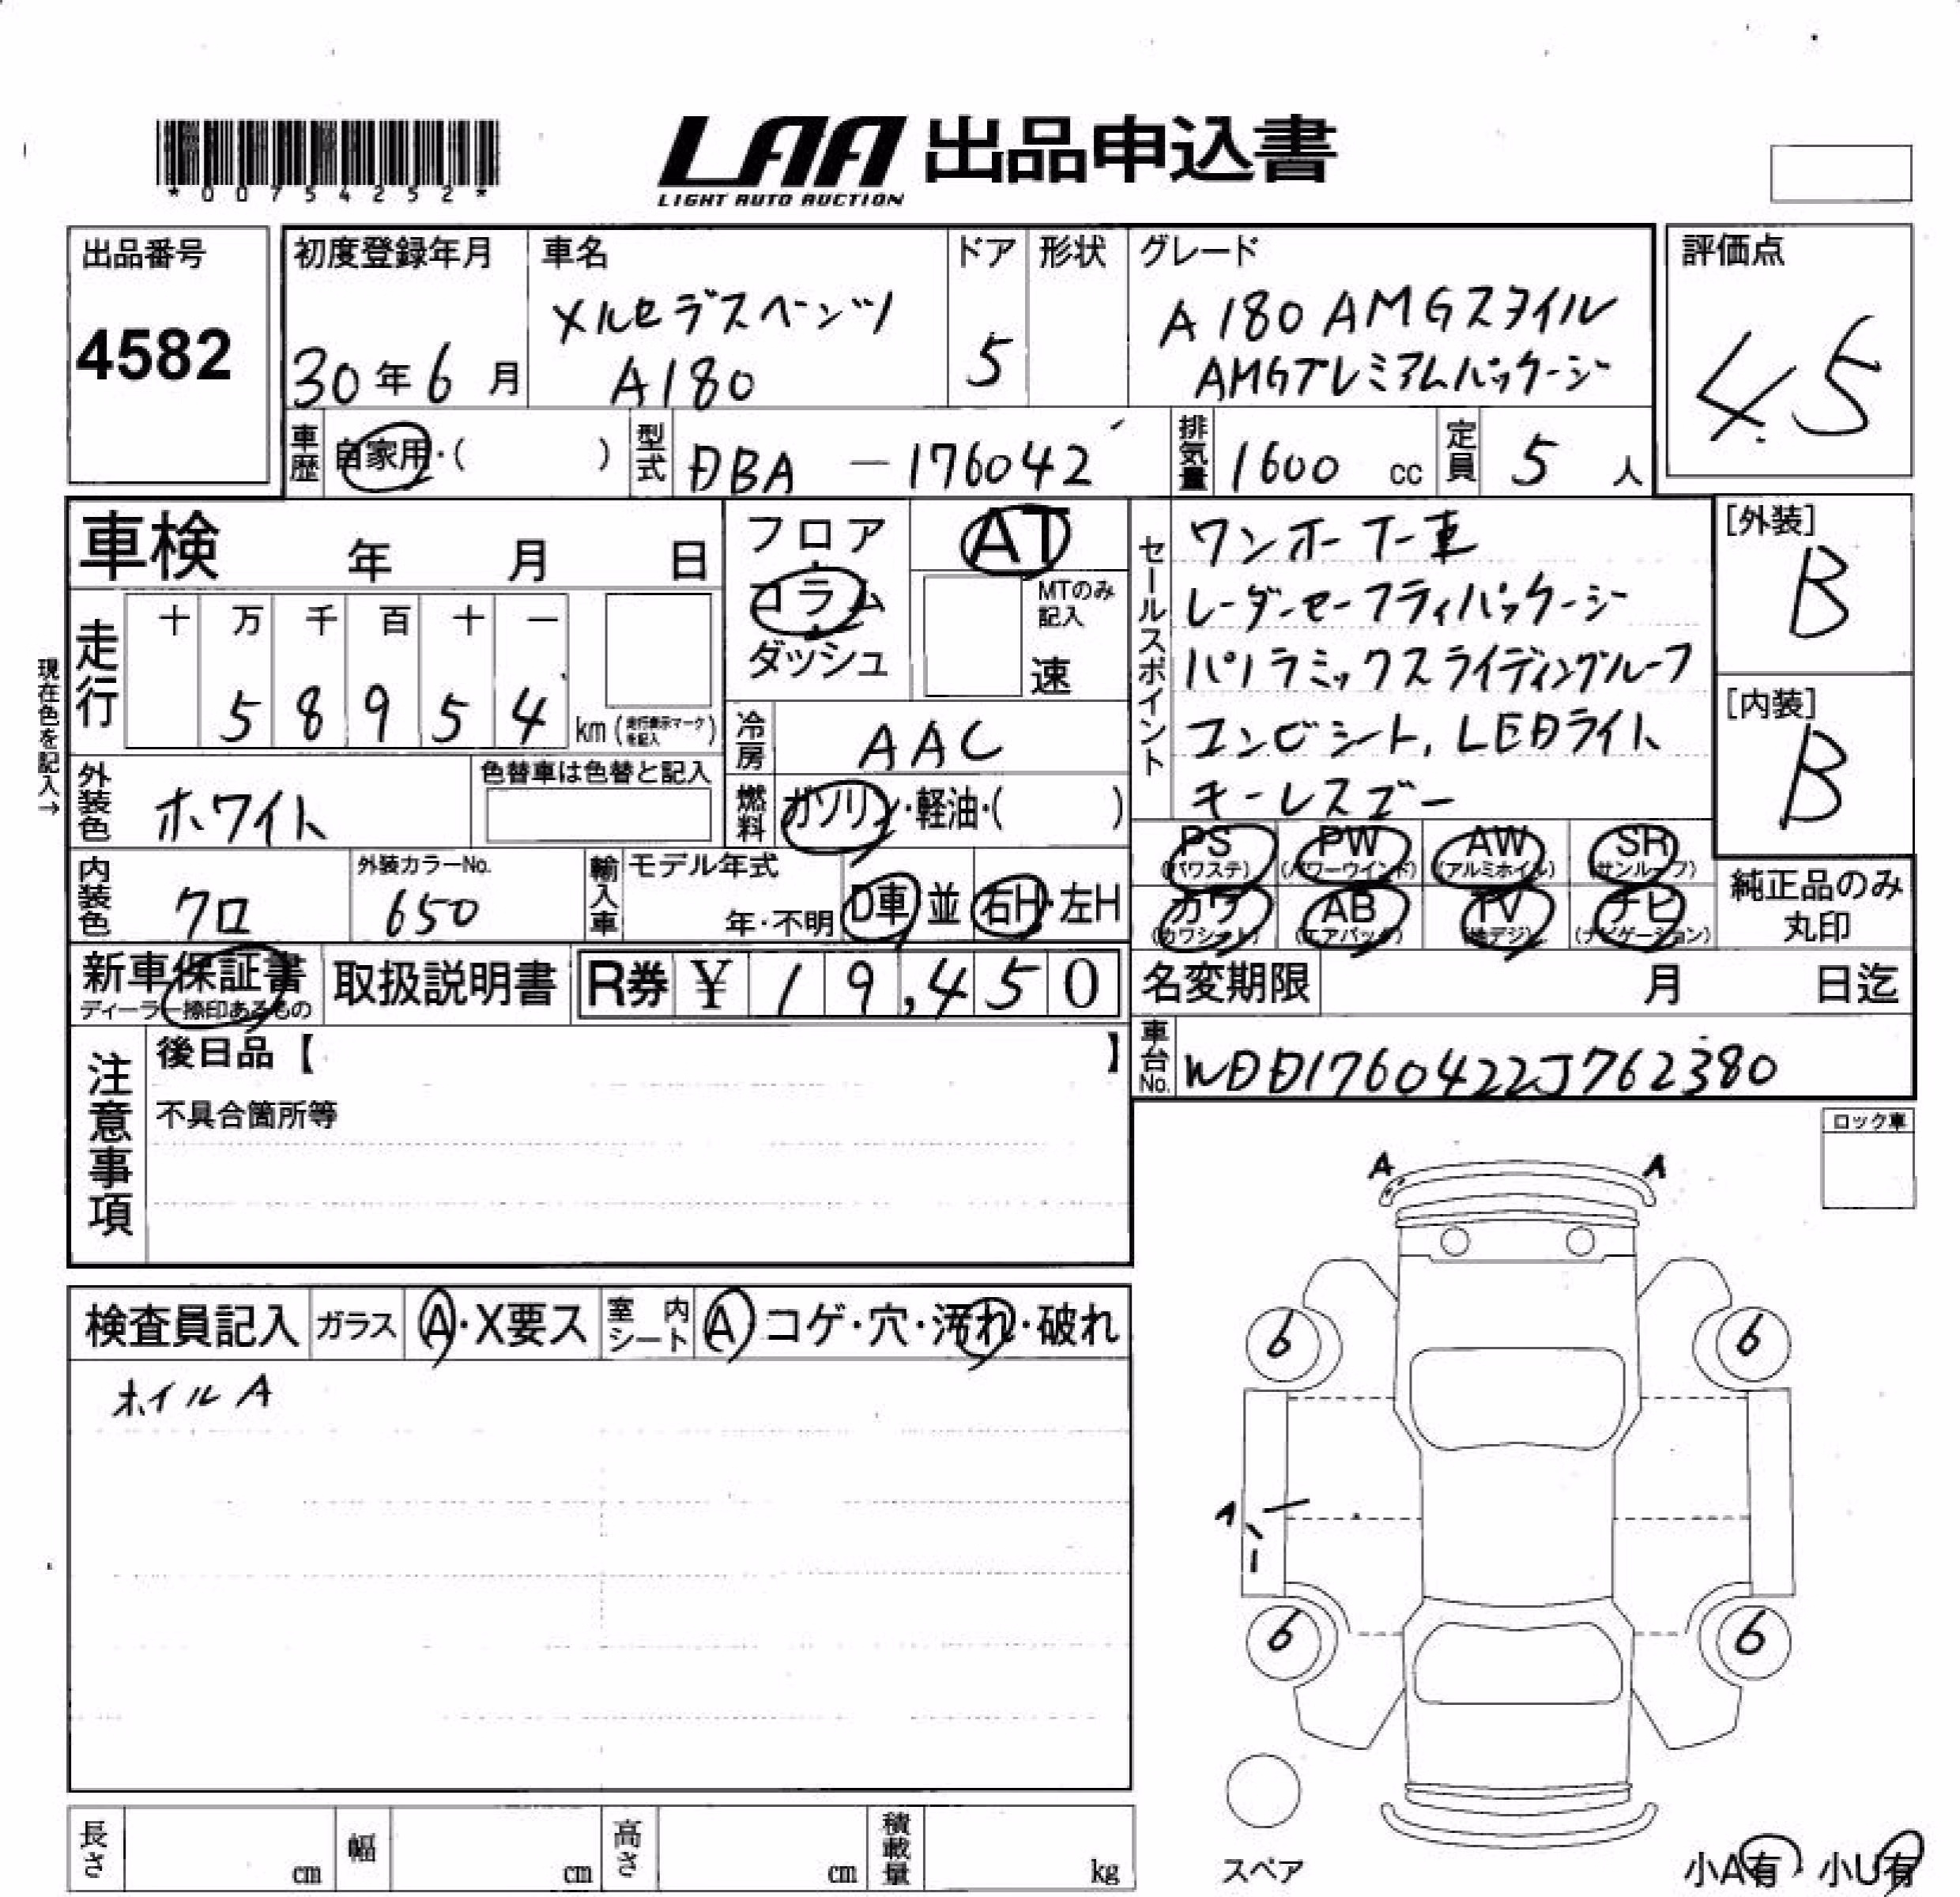 *00754252*
LAA 出品申込書
LIGHT AUTO AUCTION
出品番号
4582
初度登録年月
30年6月
車名
メルセデスベンツ
A180
ドア
5
形状
グレード
A180 AMGスタイル
AMGプレミアムパッケージ
評価点
4.5
車歴
自家用・( )
型式
DBA - 176042
排気量
1600 cc
定員
5 人
車検 年 月 日
フロア
コラム
ダッシュ
AT
MTのみ
記入
速
セールスポイント
ワンオーナー車
レーダーセーフティパッケージ
パノラミックスライディングルーフ
コンビシート、LEDライト
キーレスゴー
[外装]
B
[内装]
B
現在色を記入→
走行
十 万 千 百 十 一
5 8 9 5 4
km(走行表示マークを記入)
冷房
AAC
外装色
ホワイト
色替車は色替と記入
燃料
ガソリン・軽油・( )
PS PW AW SR
(パワステ) (パワーウインド) (アルミホイル) (サンルーフ)
カワ AB TV ナビ
(カワシート) (エアバック) (地デジ) (ナビゲーション)
純正品のみ
丸印
内装色
クロ
外装カラーNo.
650
輸入車
モデル年式
年・不明
D車 並
右H・左H
新車保証書
ディーラー捺印あるもの
取扱説明書
R券 ¥ 19,450
名変期限 月 日迄
車台No.
WDD1760422J762380
注意事項
後日品【 】
不具合箇所等
ロック車
A A
検査員記入
ガラス
A・X要ス
室内シート
A コゲ・穴・汚れ・破れ
ホイルA
6 6
6 6
スペア
長さ cm
幅 cm
高さ cm
積載量 kg
小A有・小U有